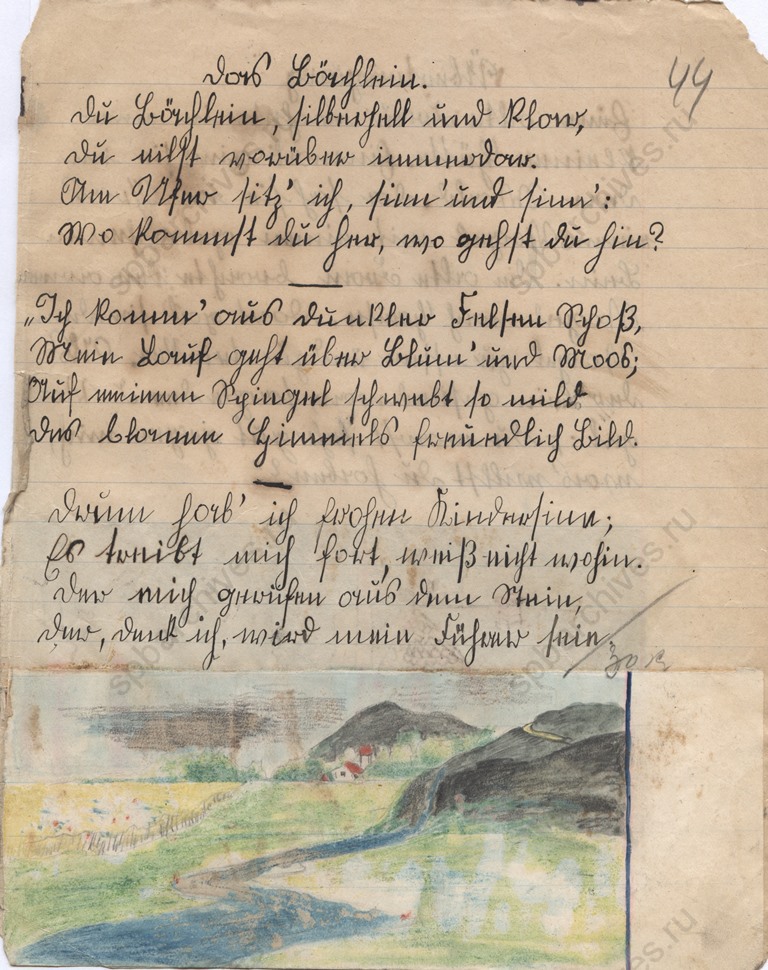 Das Bächlein.
44
Du Bächlein, silberhell und klar,
Du eilst vorüber immerdar.
Am Ufer sitz' ich, sinn' und sinn':
Wo kommst du her, wo gehst du hin?
„Ich komm' aus dunkler Felsen Schoß,
Mein Lauf geht über Blum' und Moos;
Auf meinem Spiegel schwebt so mild
Des blauen Himmels freundlich Bild.
Drum hab' ich frohen Kindersinn;
Es treibt mich fort, weiß nicht wohin.
Der mich gerufen aus dem Stein,
Der, denk' ich, wird mein Führer sein.
spbarchives.ru